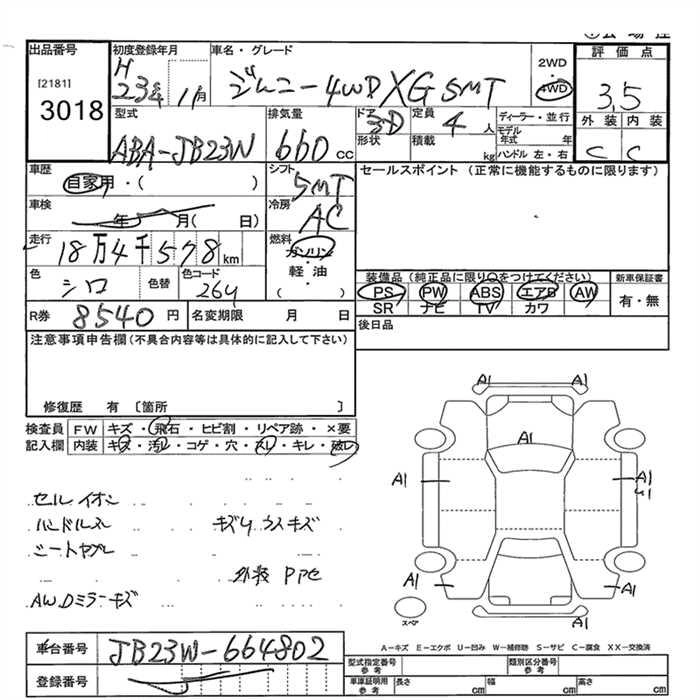 出品番号
[2181]
3018
初度登録年月
H
23年 1月
車名・グレード
ジムニー 4WD XG 5MT
2WD
4WD
評価点
3.5
外装 内装
C C
型式
ABA-JB23W
排気量
660 cc
ドア
3D
形状
定員
4 人
積載
kg
ディーラー・並行
モデル
年式 年
ハンドル 左・右
車歴
自家用・( )
シフト
5MT
セールスポイント (正常に機能するものに限ります)
車検
年 月( 日)
冷房
AC
走行
18万4千578 km
燃料
ガソリン
軽油
( )
色
シロ
色替
色コード
26U
装備品 (純正品に限り○をつけてください)
PS PW ABS エアB AW
SR ナビ TV カワ
新車保証書
有・無
R券
8540 円
名変期限 月 日
後日品
注意事項申告欄(不具合内容等は具体的に記入して下さい)
修復歴 有 〔箇所 〕
検査員
記入欄
FW キズ・飛石・ヒビ割・リペア跡・×要
内装 キズ・汚レ・コゲ・穴・スレ・キレ・破レ
セルイオン
ハンドルスレ キズU ウスキズ
シートヤブレ
AW.Dミラーキズ
A1 A1
A1
A1 A1
A1 A1
A1
スペア
A-キズ E-エクボ U-凹み W-補修跡 S-サビ C-腐食 XX-交換済
車台番号
JB23W-664802
登録番号
型式指定番号
参考
類別区分番号
参考
車庫証明用
参考
長さ cm 幅 cm 高さ cm